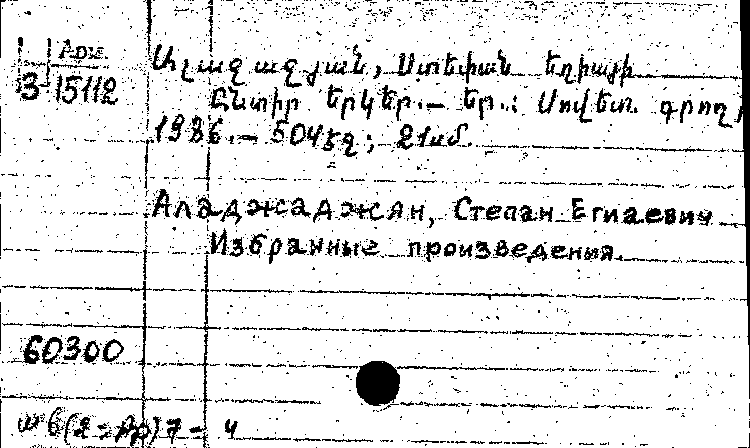 Арм
3-15112
Ալաջաջյան, Ստեփան Եղիայի
Ընտիր երկեր.— Եր.: Սովետ. գրող,
1986.— 504 էջ; 21սմ.
Аладжаджян, Степан Егиаевич
Избранные произведения.
60300